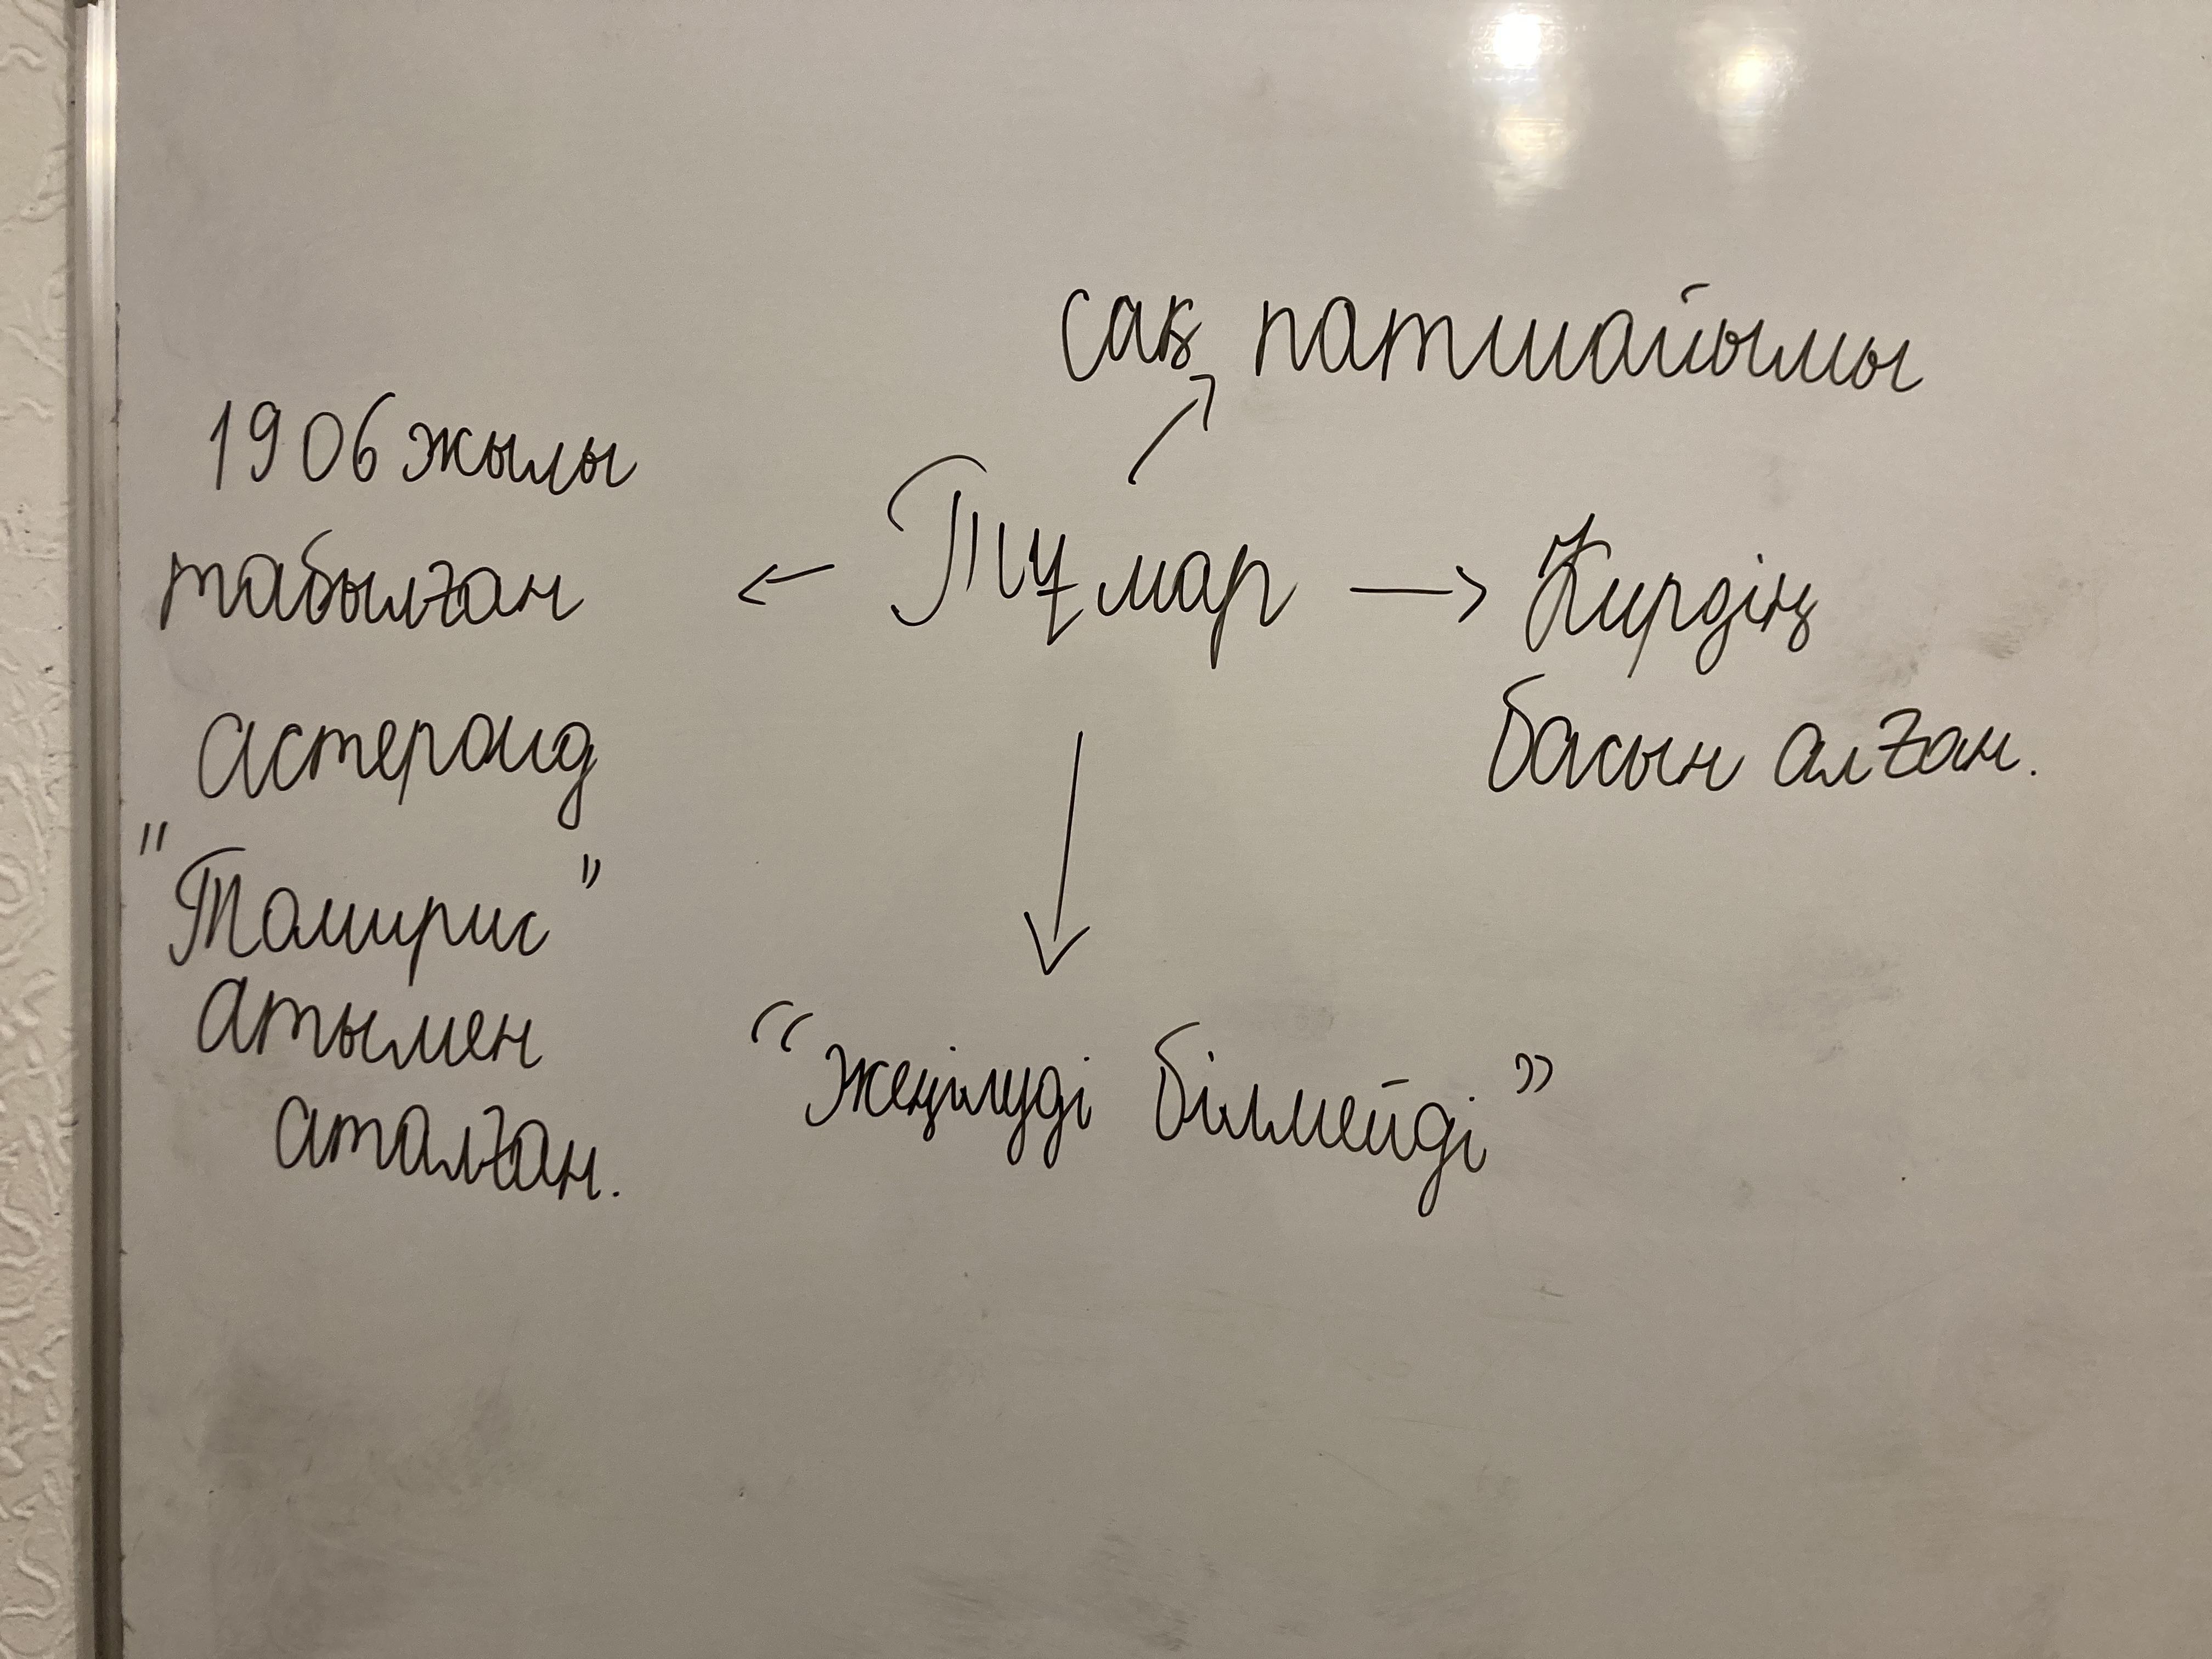 сақ патшайымы
1906 жылы
табылған
астероид
"Томирис"
атымен
аталған.
Тұмар
Кирдің
басын алған.
"жеңілуді білмейді"